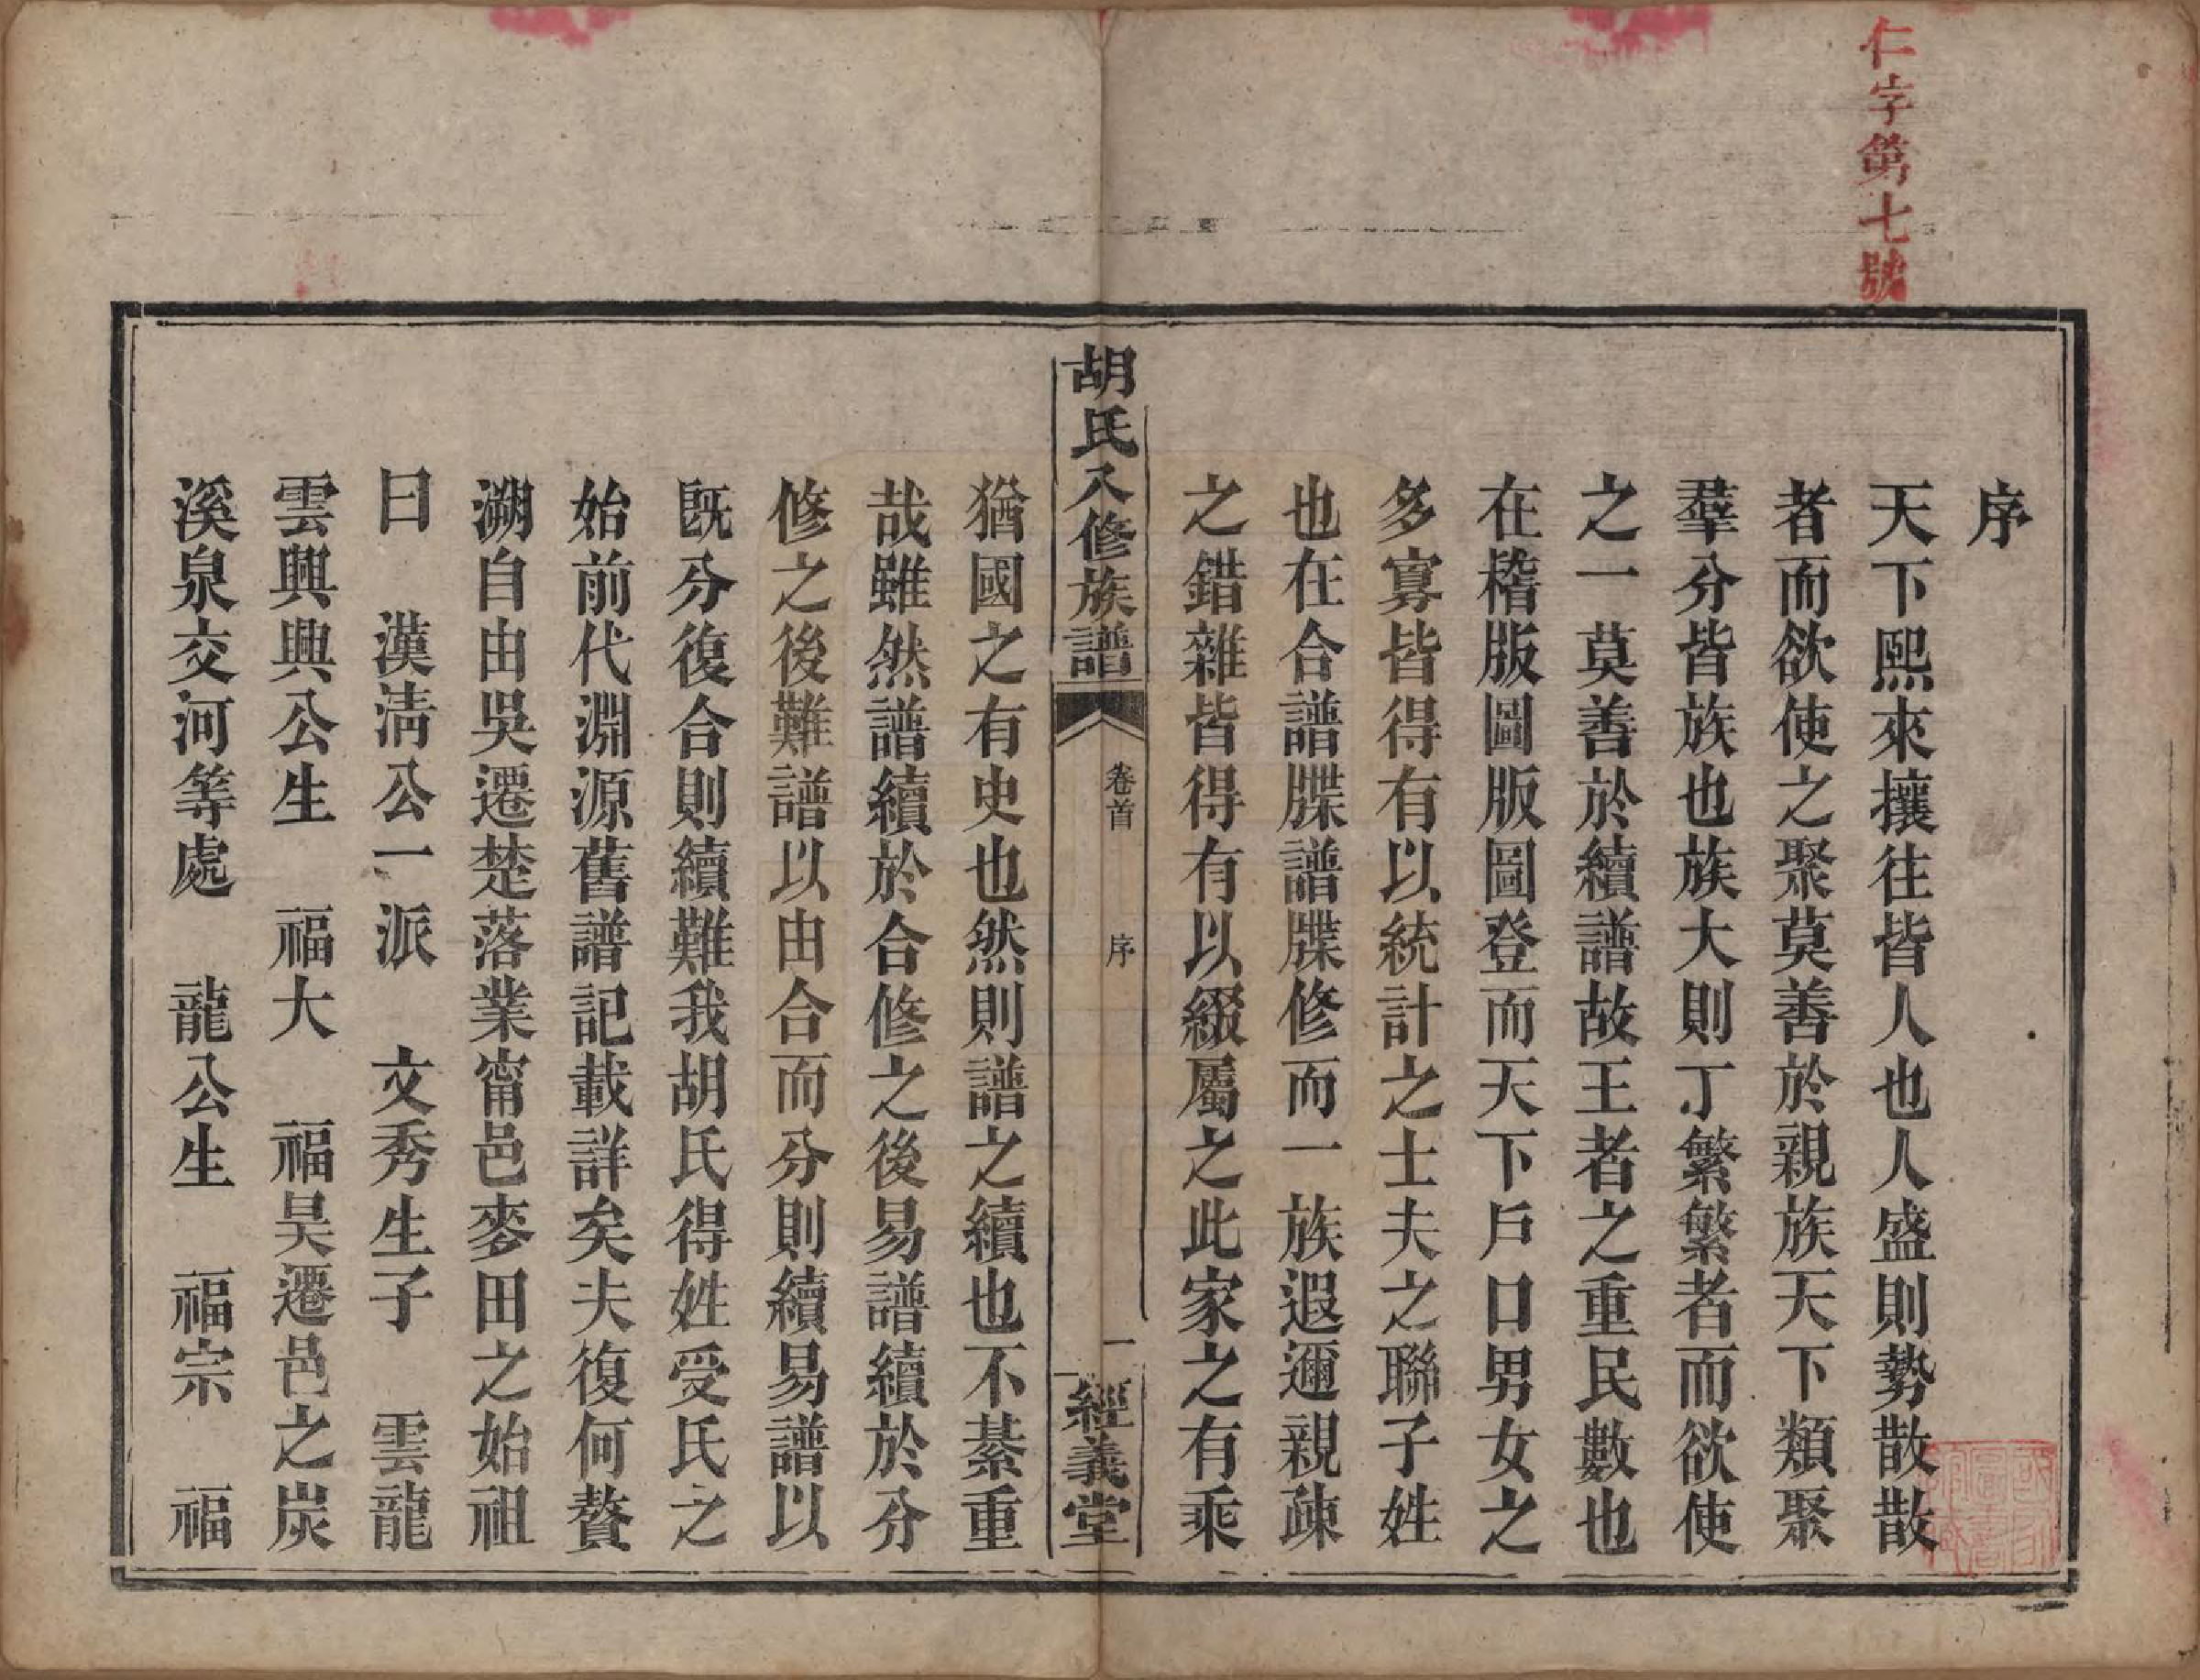 仁字第七號
序
天下熙來攘往皆人也人盛則勢散散
者而欲使之聚莫善於親族天下類聚
羣分皆族也族大則丁繁繁者而欲使
之一莫善於續譜故王者之重民數也
在稽版圖版圖登而天下戶口男女之
多寡皆得有以統計之士夫之聯子姓
也在合譜牒譜牒修而一族遐邇親疎
之錯雜皆得有以綴屬之此家之有乘
胡氏入修族譜
卷首
序
一
經義堂
猶國之有史也然則譜之續也不綦重
哉雖然譜續於合修之後易譜續於分
修之後難譜以由合而分則續易譜以
旣分復合則續難我胡氏得姓受氏之
始前代淵源舊譜記載詳矣夫復何贅
溯自由吳遷楚落業甯邑麥田之始祖
曰　漢淸公一派　文秀生子　雲龍
雲興興公生　福大　福昊遷邑之炭
溪泉交河等處　龍公生　福宗　福